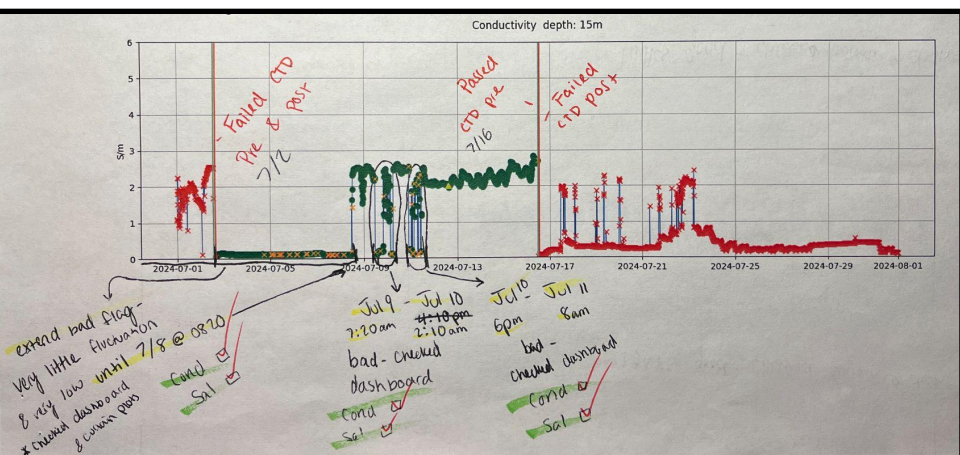 Conductivity depth: 15m
6
5
4
3
2
1
0
S/m
2024-07-01
2024-07-05
2024-07-09
2024-07-13
2024-07-17
2024-07-21
2024-07-25
2024-07-29
2024-08-01
- Failed CTD
Pre & Post
7/2
Passed
CTD pre
7/16
- Failed
CTD Post
extend bad flag -
very little fluctuation
& very low until 7/8 @ 0820
* checked dashboard
Cond
Sal
Jul 9 - Jul 10
7:20am 4:10pm
2:10am
bad - checked
dashboard
Cond
Sal
Jul 10 - Jul 11
6pm 8am
bad -
checked dashboard
Cond
Sal